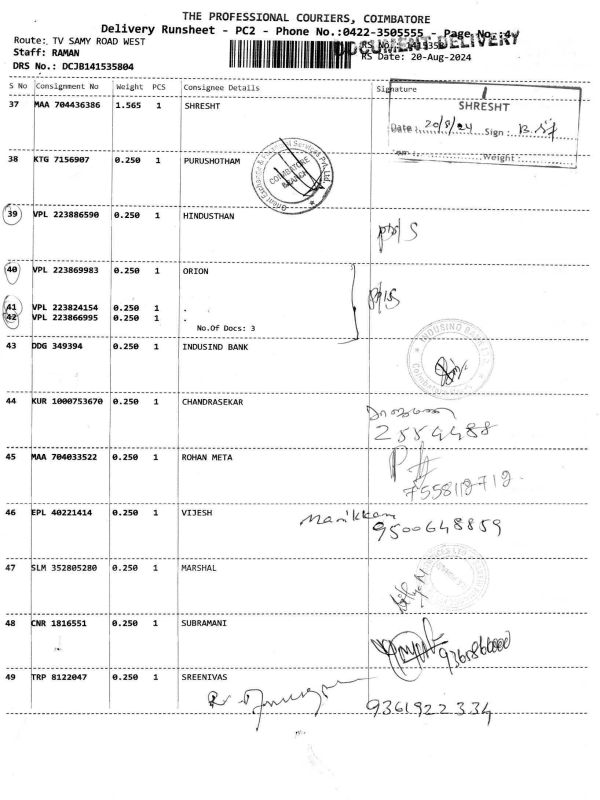 THE PROFESSIONAL COURIERS, COIMBATORE
Delivery Runsheet - PC2 - Phone No.:0422-3505555 - Page No.:4
Route: TV SAMY ROAD WEST
DOCUMENT DELIVERY
Staff: RAMAN
RS Date: 20-Aug-2024
DRS No.: DCJB141535804
S No Consignment No Weight PCS Consignee Details Signature
37 MAA 704436386 1.565 1 SHRESHT
SHRESHT
Date: 20/8/24 Sign:
Weight:
38 KTG 7156907 0.250 1 PURUSHOTHAM
COIMBATORE BRANCH
39 VPL 223886590 0.250 1 HINDUSTHAN
40 VPL 223869983 0.250 1 ORION
41 VPL 223824154 0.250 1 .
42 VPL 223866995 0.250 1 .
No.Of Docs: 3
43 DDG 349394 0.250 1 INDUSIND BANK
INDUSIND BANK LTD.
44 KUR 1000753670 0.250 1 CHANDRASEKAR
2554488
45 MAA 704033522 0.250 1 ROHAN META
46 EPL 40221414 0.250 1 VIJESH
Manikkam
9500648859
47 SLM 352805280 0.250 1 MARSHAL
48 CNR 1816551 0.250 1 SUBRAMANI
49 TRP 8122047 0.250 1 SREENIVAS
9361922334